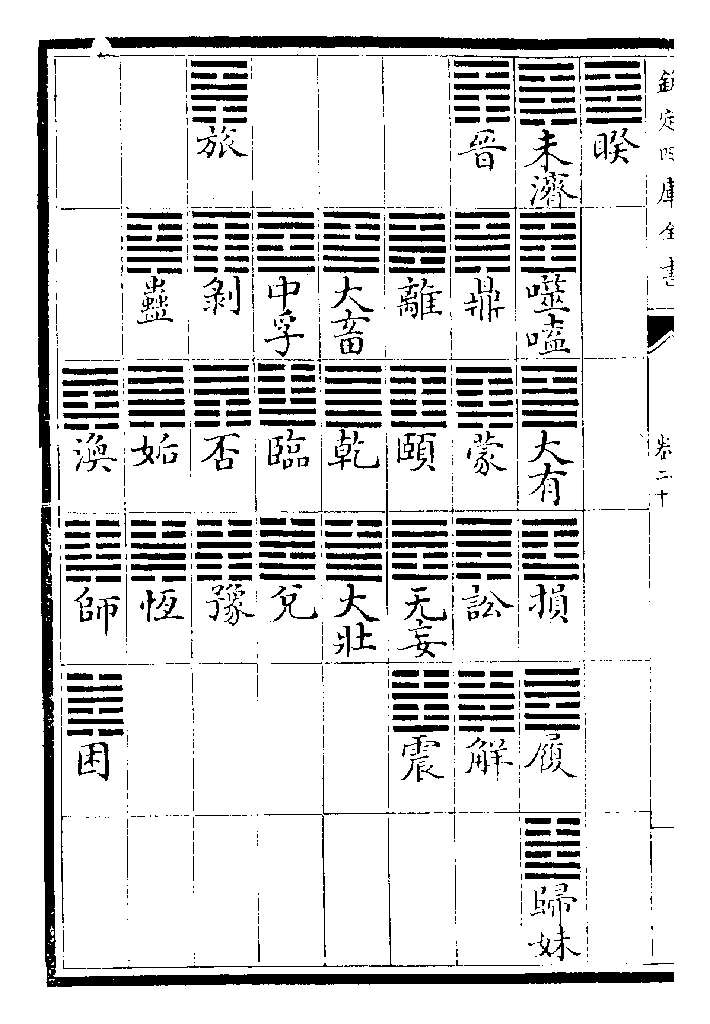 欽定四庫全書
卷二十
睽
未濟
噬嗑
大有
損
履
歸妹
晉
鼎
蒙
訟
解
離
頤
无妄
震
大畜
乾
大壯
中孚
臨
兌
旅
剝
否
豫
蠱
姤
恆
渙
師
困